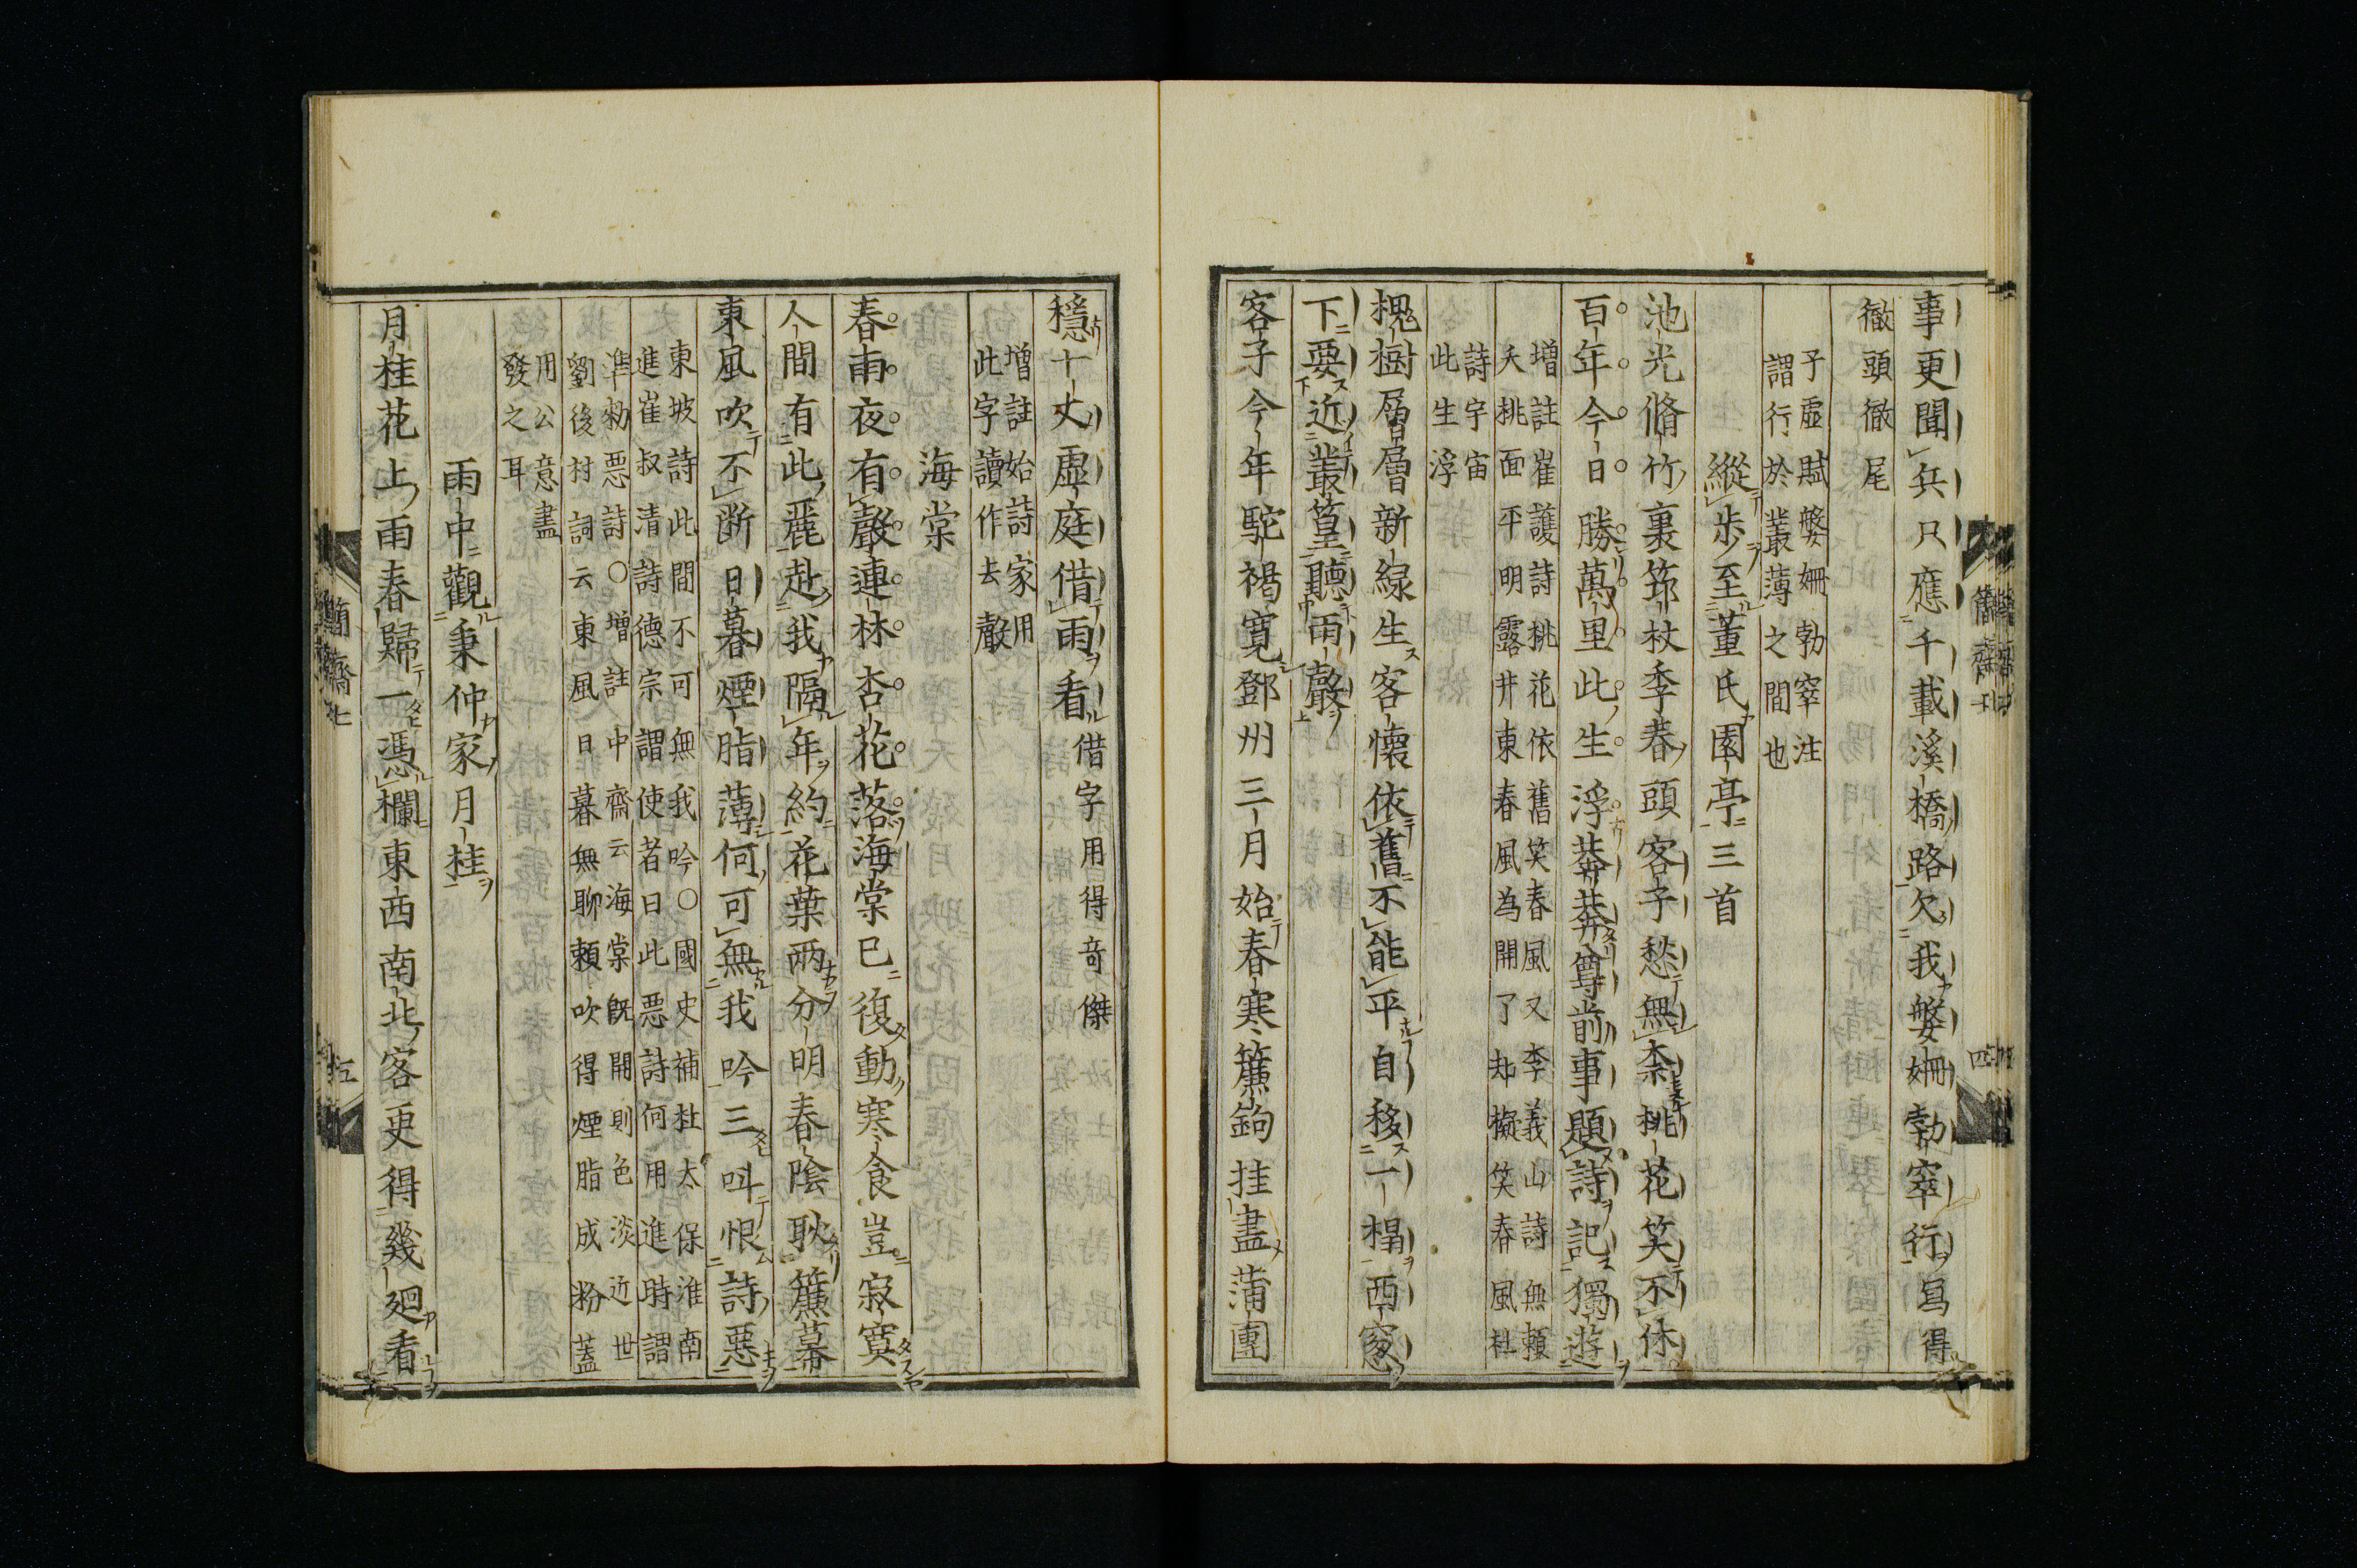 事更聞兵只應千載溪橋路欠我媻姍勃窣行寫得
徹頭徹尾
子虛賦媻姍勃窣注
謂行於叢薄之間也
縱步至董氏園亭三首
池光脩竹裏筇杖季春頭客子愁無柰桃花笑不休
百年今日勝萬里此生浮莽莽尊前事題詩記獨遊
增註崔護詩桃花依舊笑春風又李義山詩無賴
夭桃面平明露井東春風為開了却擬笑春風杜
詩宇宙
此生浮
槐樹層層新綠生客懷依舊不能平自移一榻西窓
下要近叢篁聽雨聲
客子今年駝褐寬鄧州三月始春寒簾鉤挂盡蒲團
穩十丈虛庭借雨看借字用得竒傑
增註始詩家用
此字讀作去聲
海棠
春雨夜有聲連林杏花落海棠已復動寒食豈寂寞
人間有此麗赴我隔年約花葉兩分明春陰耿簾幕
東風吹不斷日暮煙脂薄何可無我吟三叫恨詩惡
東坡詩此間不可無我吟○國史補杜太保淮南
進崔叔清詩德宗謂使者曰此惡詩何用進時謂
準勑惡詩○增註中齋云海棠既開則色淡近世
劉後村詞云東風日暮無聊賴吹得煙脂成粉蓋
用公意盡
發之耳
雨中觀秉仲家月桂
月桂花上雨春歸一憑欄東西南北客更得幾廻看
簡齋七